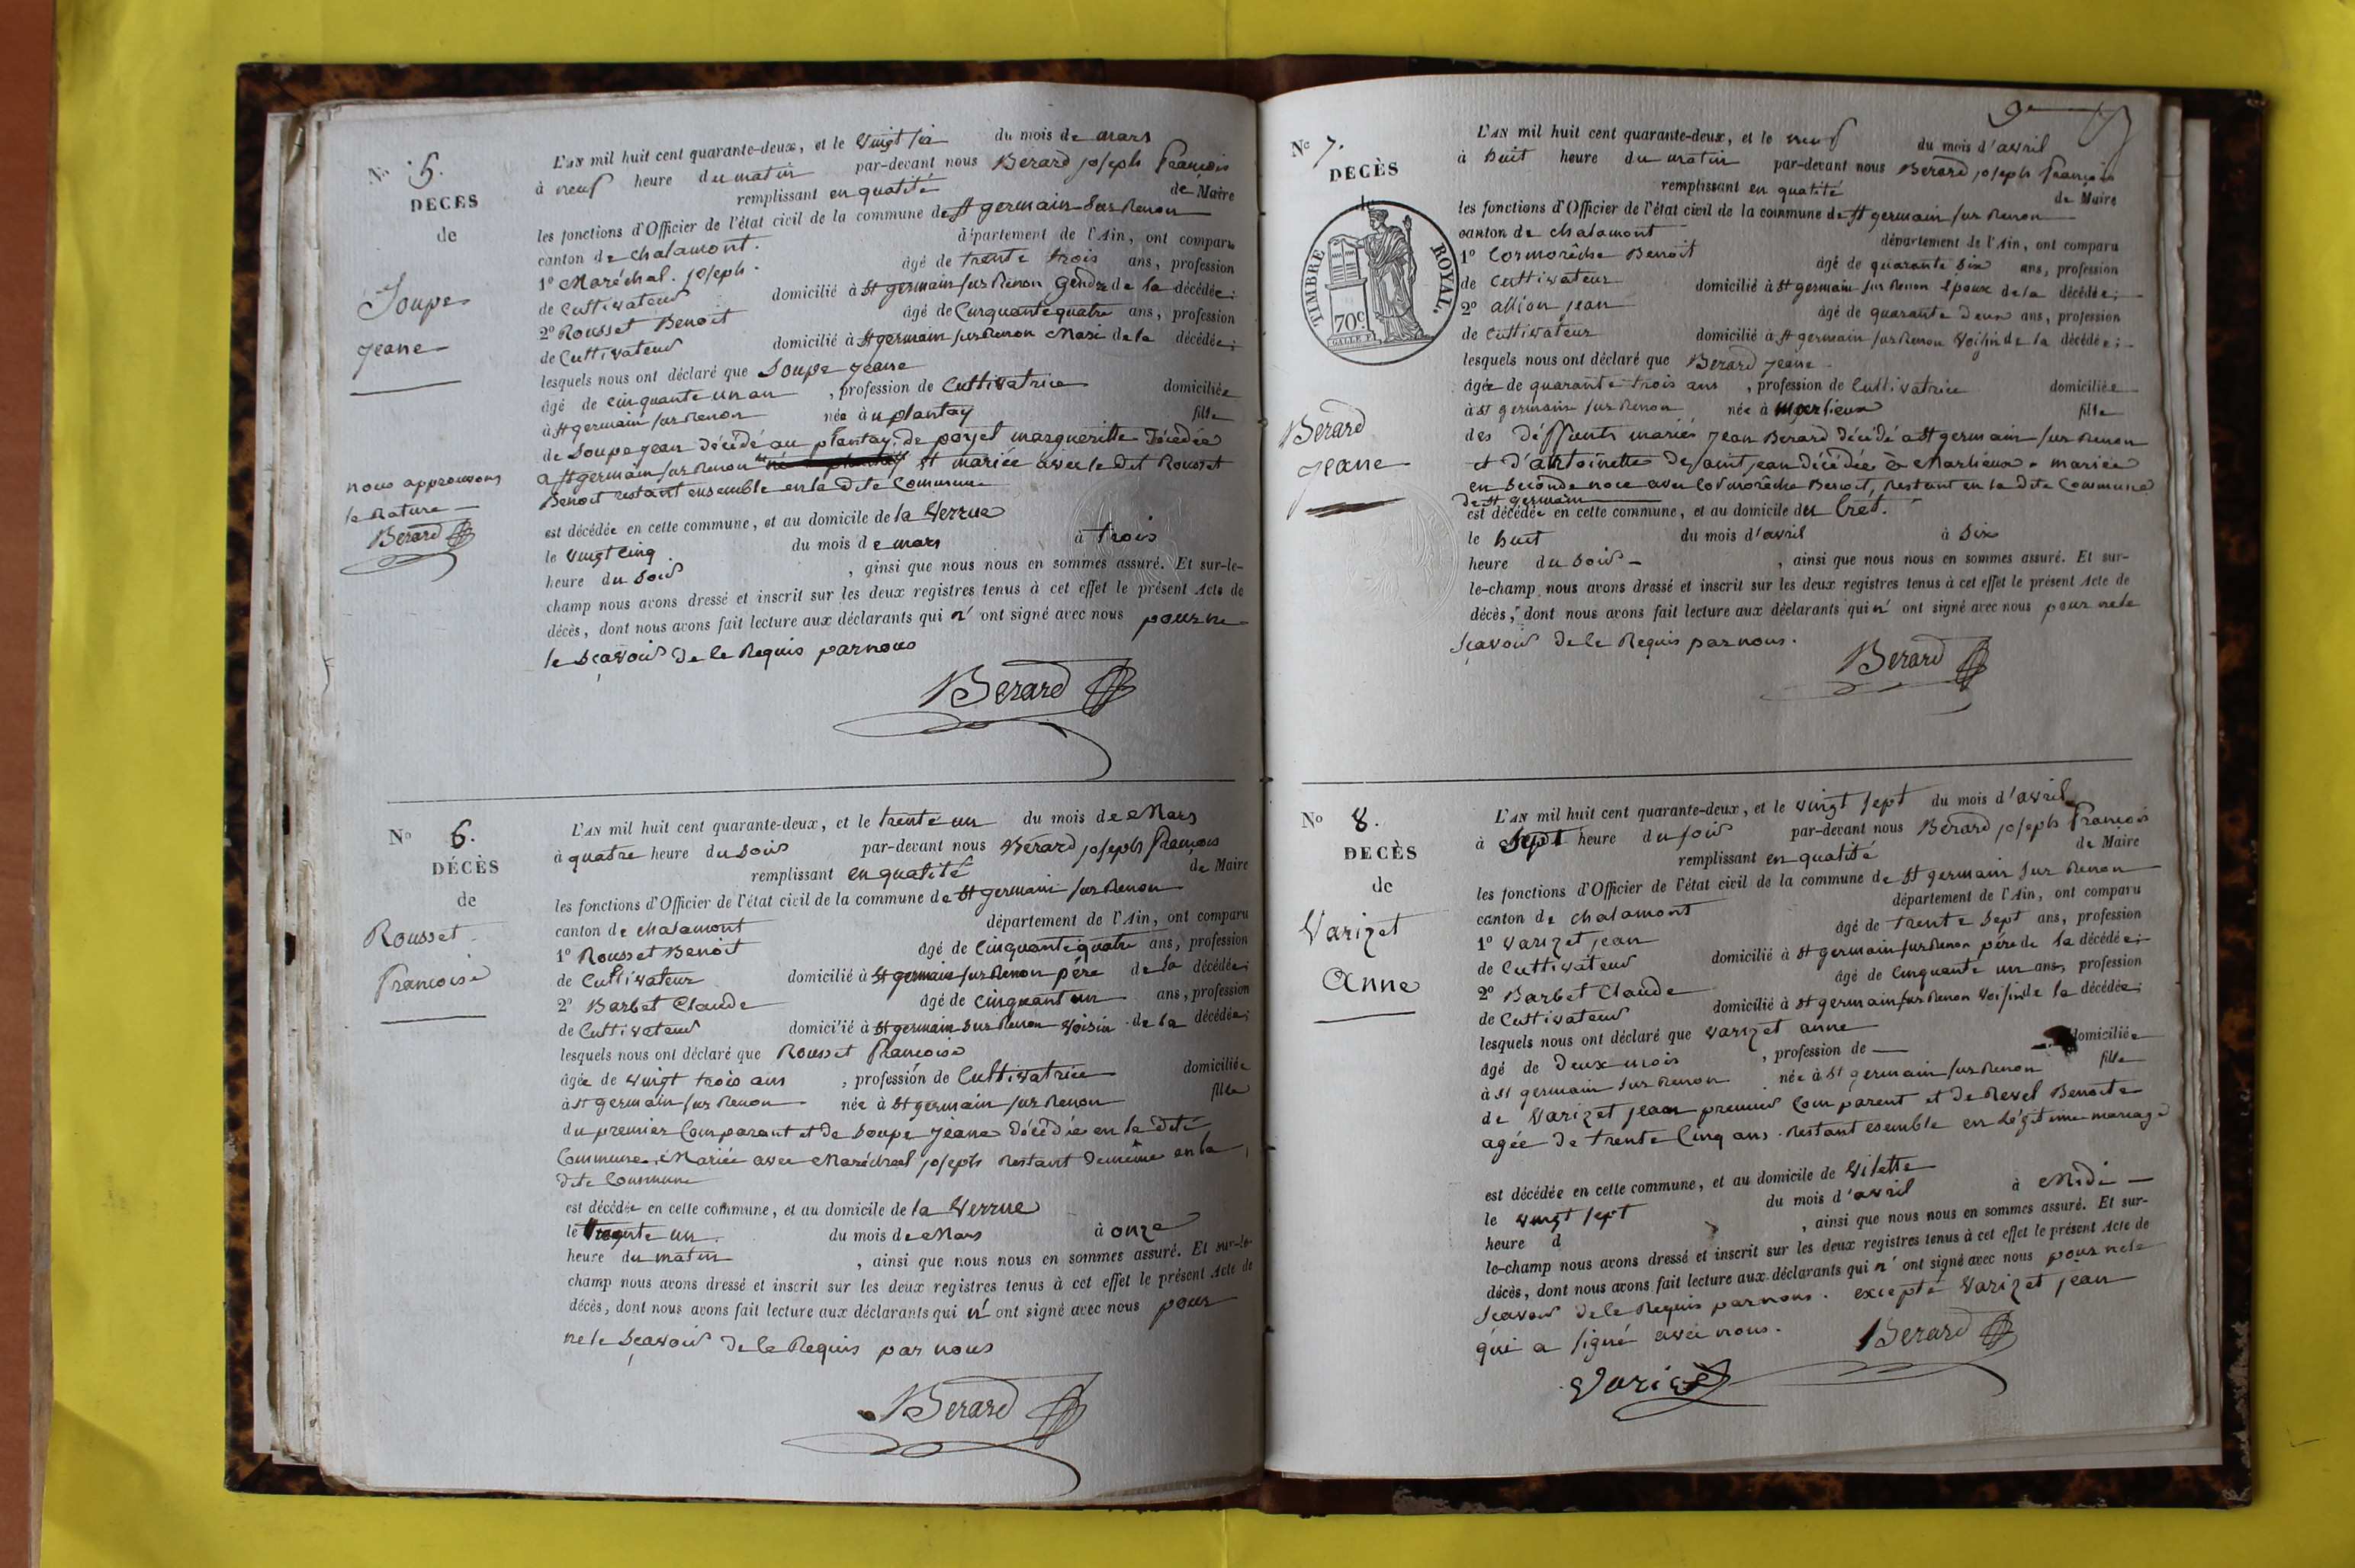 N° 5.
DECES
de
Soupe
Jeane
nous approuvons
la Rature
Berard
L'AN mil huit cent quarante-deux, et le Vingt six du mois de mars
à neuf heure du matin par-devant nous Berard joseph François
remplissant en qualité de Maire
les fonctions d'Officier de l'état civil de la commune de St germain Sur Renon
canton de chalamont. département de l'Ain, ont comparu
1° Maréchal joseph. âgé de trente trois ans, profession
de Cultivateur domicilié à St germain sur Renon Gendre de la décédée;
2° Rousset Benoit âgé de Cinquante quatre ans, profession
de Cultivateur domicilié à St germain sur Renon Mari de la décédée;
lesquels nous ont déclaré que Soupe Jeane
âgé de cinquante un an, profession de Cultivatrice domiciliée
à St germain sur Renon née àu plantay fille
de Soupe jean décédé au plantay, de poyet margueritte Décédée
a St germain sur Renon et mariée avec le dit Rousset
Benoit restant ensemble en la dite Commune
est décédée en cette commune, et au domicile de la Verrue
le vingt cinq du mois de mars à trois
heure du Soir, ainsi que nous nous en sommes assuré. Et sur-le-
champ nous avons dressé et inscrit sur les deux registres tenus à cet effet le présent Acte de
décès, dont nous avons fait lecture aux déclarants qui n' ont signé avec nous pour ne
le sçavoir de le Requis par nous
Berard
N° 6.
DÉCÈS
de
Rousset
Francoise
L'AN mil huit cent quarante-deux, et le trente un du mois de Mars
à quatre heure du Soir par-devant nous Berard joseph François
remplissant en qualité de Maire
les fonctions d'Officier de l'état civil de la commune de St germain sur Renon
canton de chalamont département de l'Ain, ont comparu
1° Rousset Benoit âgé de Cinquante quatre ans, profession
de Cultivateur domicilié à St germain sur Renon père de la décédée;
2° Barbet Claude âgé de cinquant un ans, profession
de Cultivateur domicilié à St germain Sur Renon Voisin de la décédée;
lesquels nous ont déclaré que Rousset Francoise
âgée de vingt trois ans, profession de Cultivatrice domiciliée
à St germain sur Renon née à St germain sur Renon fille
du premier Comparant et de Soupe Jeane décédée en la dite
Commune. Mariée avec Maréchal joseph Restant demême en la
dite Commune
est décédée en cette commune, et au domicile de la Verrue
le trente un du mois de Mars à onze
heure du matin, ainsi que nous nous en sommes assuré. Et sur-le-
champ nous avons dressé et inscrit sur les deux registres tenus à cet effet le présent Acte de
décès, dont nous avons fait lecture aux déclarants qui n' ont signé avec nous pour
ne le Sçavoir de le Requis par nous
Berard
N° 7.
DECÈS
de
TIMBRE ROYAL.
70c
Berard
Jeane
L'AN mil huit cent quarante-deux, et le neuf du mois d'avril
à huit heure du matin par-devant nous Berard joseph François
remplissant en qualité de Maire
les fonctions d'Officier de l'état civil de la commune de St germain sur Renon
canton de chalamont département de l'Ain, ont comparu
1° Cormorêche Benoit âgé de quarante Six ans, profession
de Cultivateur domicilié à St germain sur Renon Epoux de la décédée;
2° allion jean âgé de quarante Deux ans, profession
de Cultivateur domicilié à St germain sur Renon Voisin de la décédée;
lesquels nous ont déclaré que Berard Jeane
âgée de quarante trois ans, profession de Cultivatrice domiciliée
à St germain sur Renon née à Marlieux fille
des Deffunts mariés Jean Berard décédé a St germain sur Renon
et d'antoinette de saint jean décédée à Marlieux. mariée
en Seconde noce avec Cormorêche Benoit, Restant en la dite Commune
De St germain
est décédée en cette commune, et au domicile du Cret.
le huit du mois d'avril à Six
heure du Soir, ainsi que nous nous en sommes assuré. Et sur-
le-champ nous avons dressé et inscrit sur les deux registres tenus à cet effet le présent Acte de
décès, dont nous avons fait lecture aux déclarants qui n' ont signé avec nous pour ne le
sçavoir de le Requis par nous.
Berard
N° 8.
DECÈS
de
Varizet
Anne
L'AN mil huit cent quarante-deux, et le vingt sept du mois d'avril
à Sept heure du soir par-devant nous Berard joseph François
remplissant en qualité de Maire
les fonctions d'Officier de l'état civil de la commune de St germain sur Renon
canton de chalamont département de l'Ain, ont comparu
1° Varizet jean âgé de trente Sept ans, profession
de Cultivateur domicilié à St germain sur Renon père de la décédée;
2° Barbet Claude âgé de Cinquante un ans, profession
de Cultivateur domicilié à St germain sur Renon Voisin de la décédée;
lesquels nous ont déclaré que Varizet anne
âgé de Deux mois, profession de — domiciliée
à St germain Sur Renon née à St germain sur Renon fille
de Varizet jean premier Comparent et de Revel Benoite
agée de trente Cinq ans. Restant esemble en légitime mariage
est décédée en cette commune, et au domicile de Vilette
le vingt sept du mois d'avril à Midi
heure d, ainsi que nous nous en sommes assuré. Et sur-
le-champ nous avons dressé et inscrit sur les deux registres tenus à cet effet le présent Acte de
décès, dont nous avons fait lecture aux déclarants qui n' ont signé avec nous pour ne le
Sçavoir de le Requis par nous. excepté Varizet jean
qui a signé avec nous.
Berard
Varizet